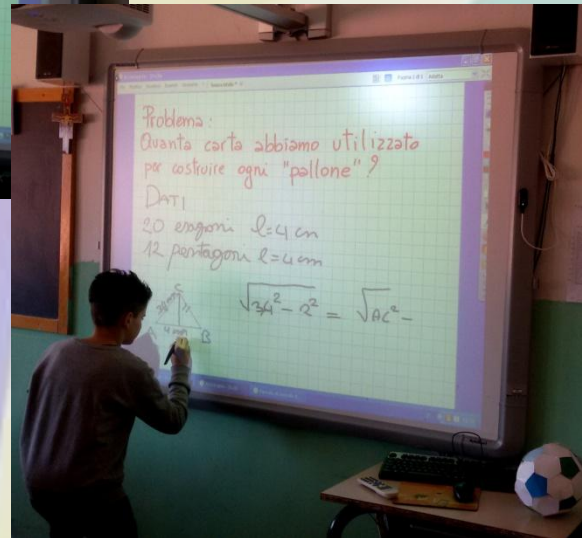 Problema:
Quanta carta abbiamo utilizzato
per costruire ogni "pallone"?
DATI
20 esagoni l=4 cm
12 pentagoni l=4 cm
√34² - 2² = √AC² -
C
B